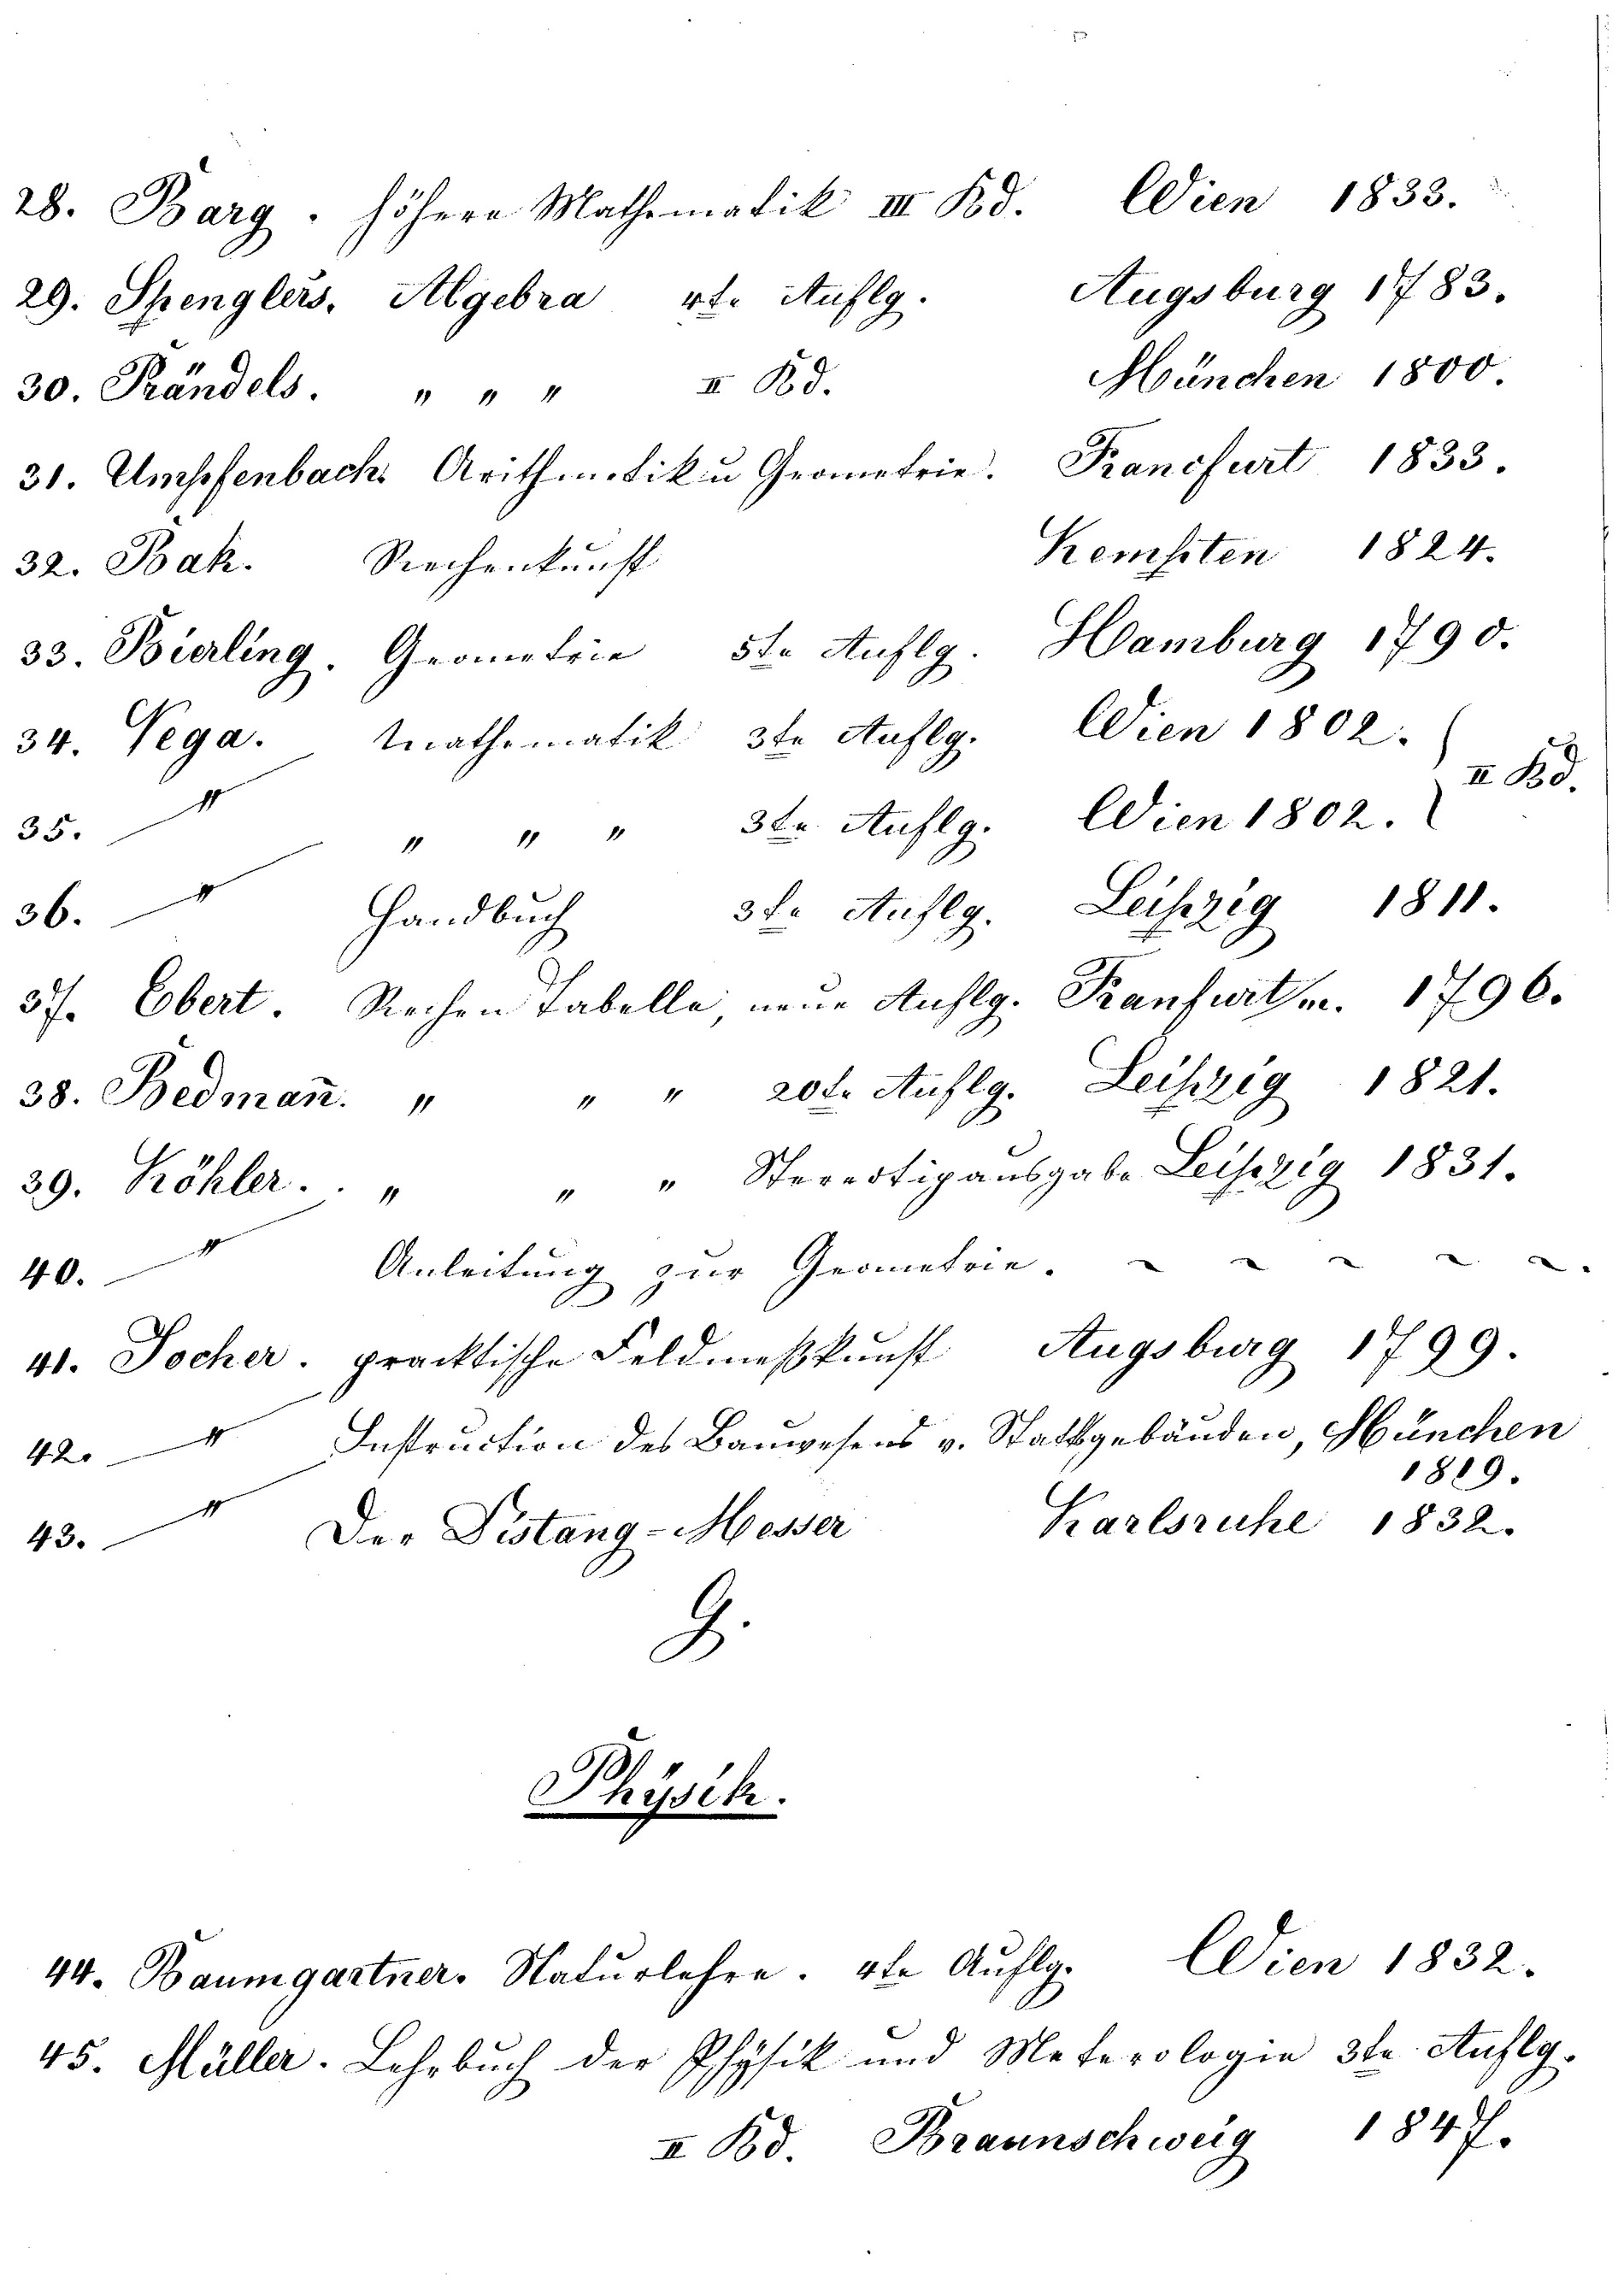 28. Barg. höhere Mathematik III Bd. Wien 1833.
29. Spenglers. Algebra 4te Auflg. Augsburg 1783.
30. Prändels. " " " II Bd. München 1800.
31. Umpfenbach. Arithmetik u Geometrie. Francfurt 1833.
32. Bak. Rechenkunst Kempten 1824.
33. Bierling. Geometrie 5te Auflg. Hamburg 1790.
34. Vega. Mathematik 3te Auflg. Wien 1802.
II Bd.
35. " " " " 3te Auflg. Wien 1802.
36. " Handbuch 3te Auflg. Leipzig 1811.
37. Ebert. Rechen Tabelle, neue Auflg. Franfurt m. 1796.
38. Bedman̄. " " " 20te Auflg. Leipzig 1821.
39. Köhler. " " " Stereotipausgabe Leipzig 1831.
40. " Anleitung zur Geometrie. ~ ~ ~ ~ ~.
41. Jocher. pracktische Feldmeßkunst Augsburg 1799.
42. " Instruction des Bauwesens v. Stattsgebäuden, München
1819.
43. " Der Distang-Messer Karlsruhe 1832.
G.
Phÿsik.
44. Baumgartner. Naturlehre. 4te Auflg. Wien 1832.
45. Müller. Lehrbuch der Phÿsik und Meterologie 3te Auflg.
II Bd. Braunschweig 1847.